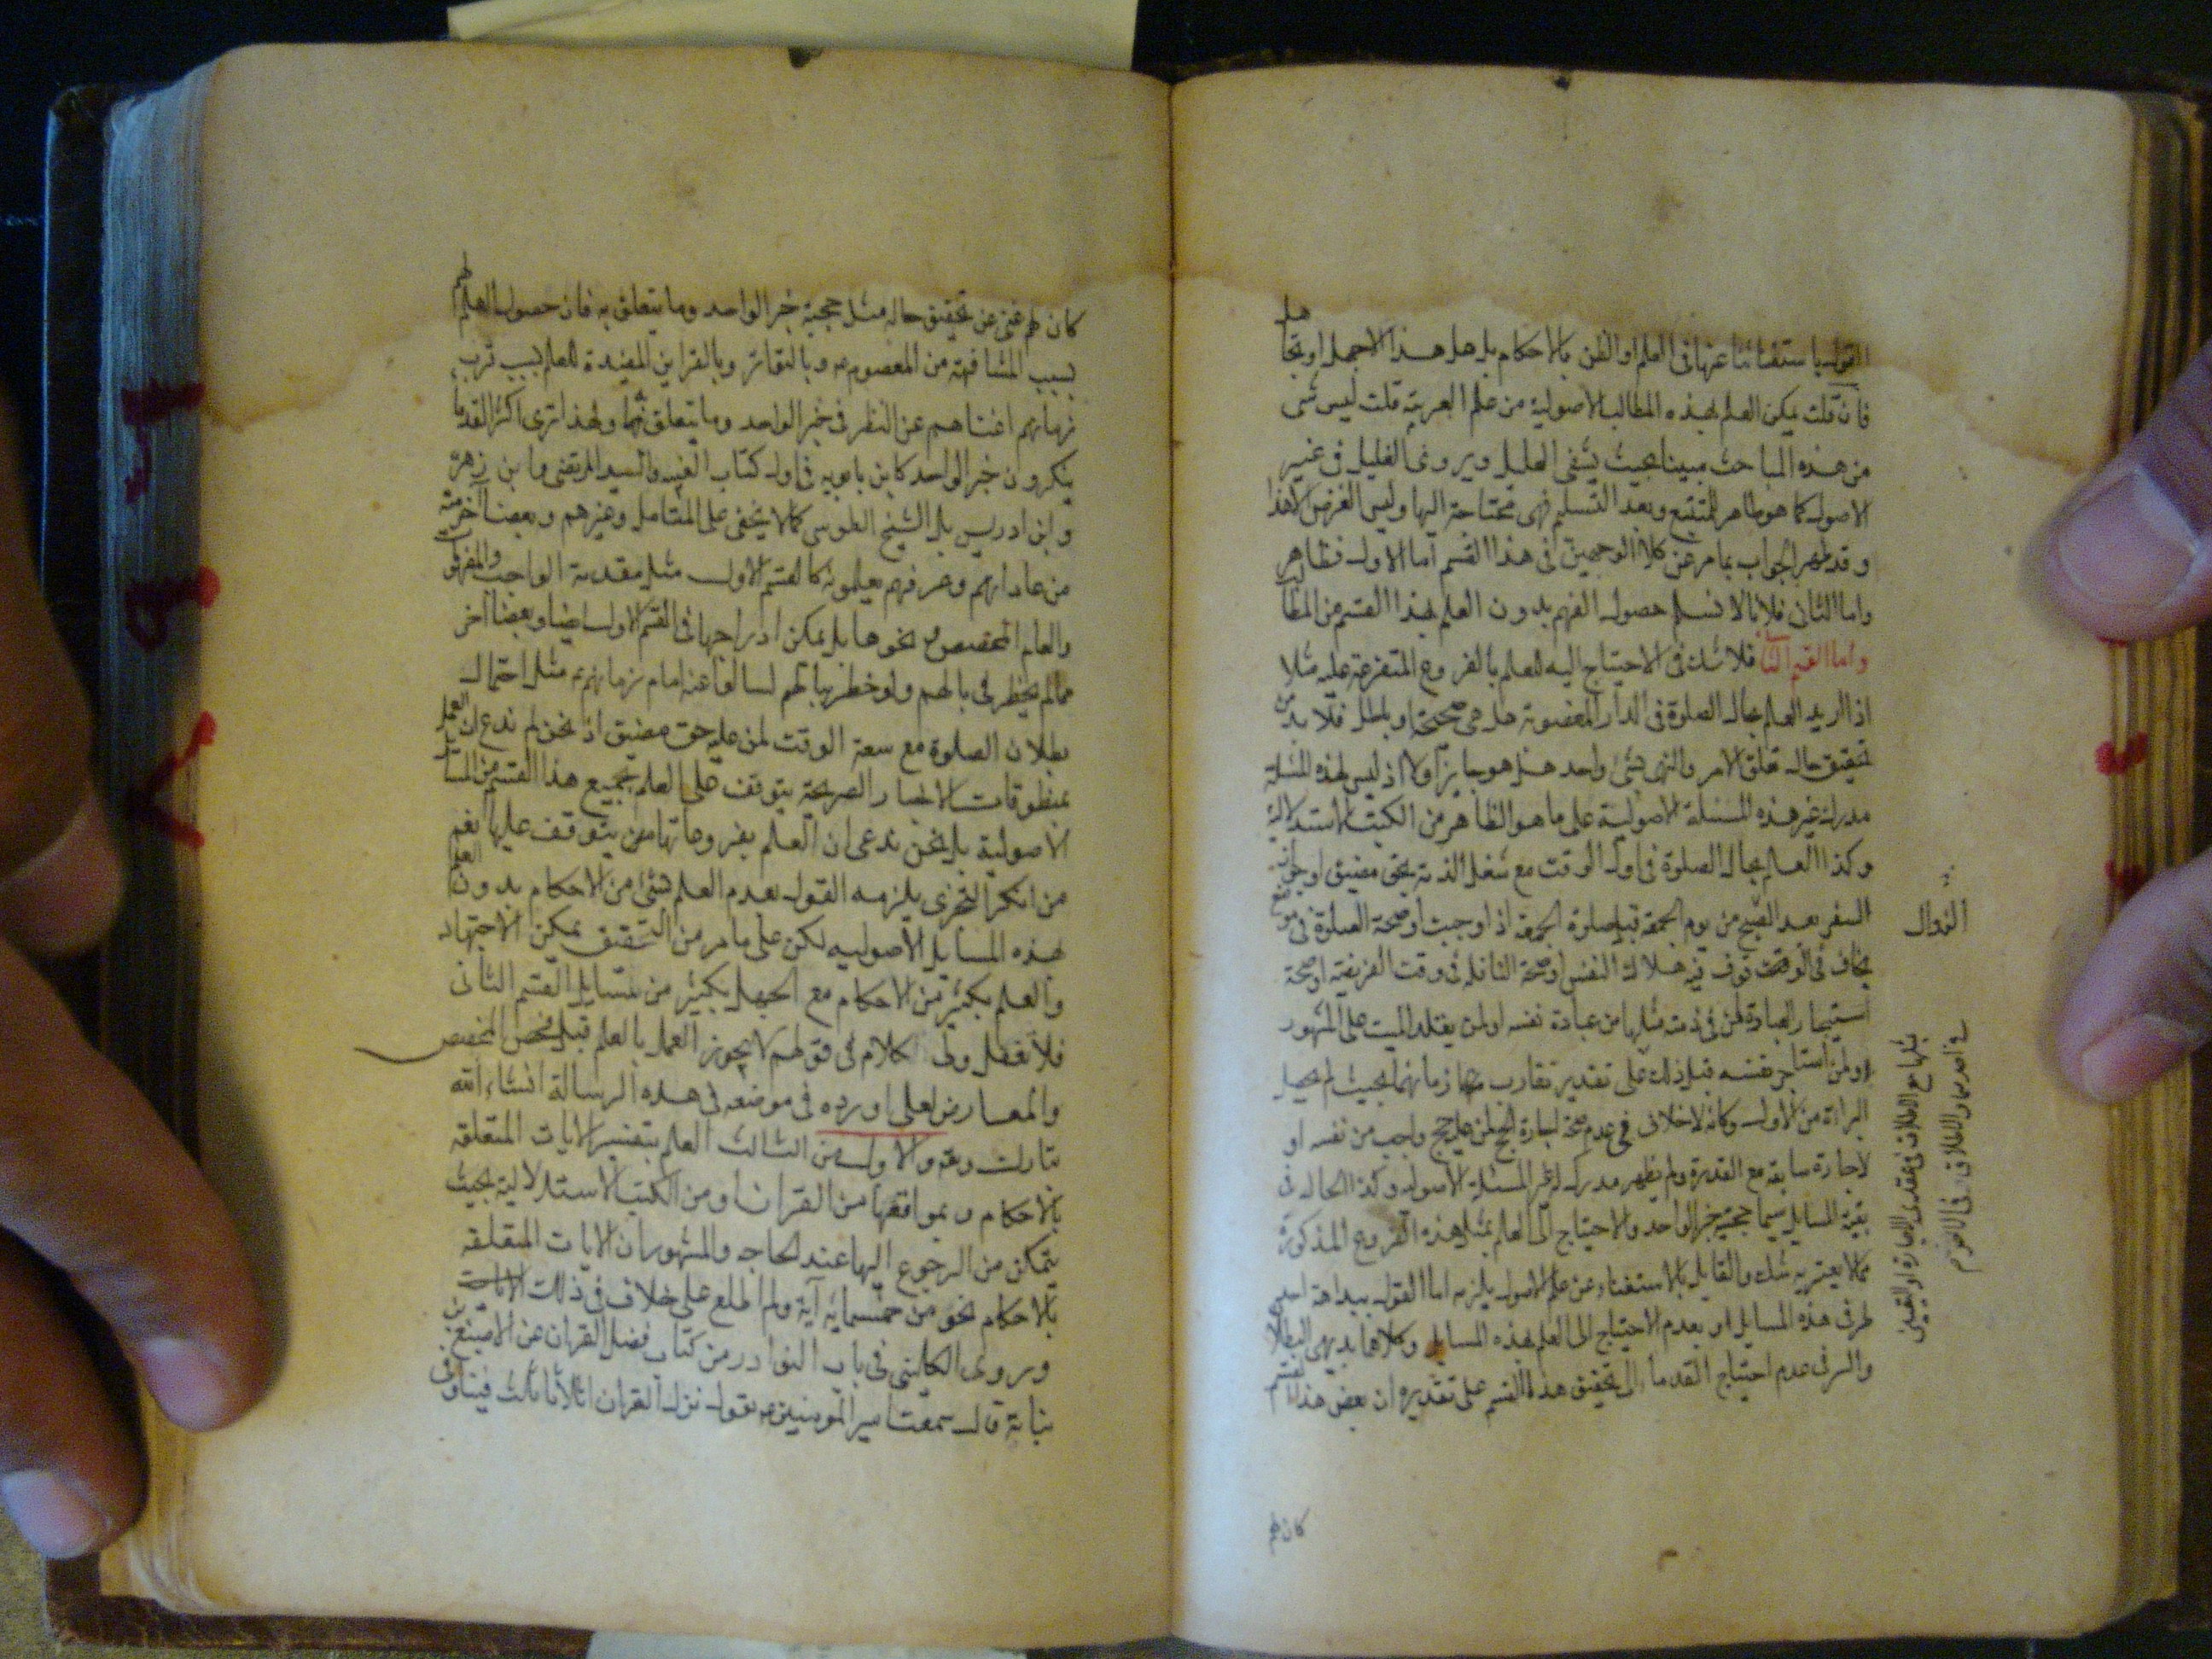 القول باستغنائنا عنها فى العلم او الظن بالاحكام بل هل هذا الاجهل او تجاهل
فان قلت يمكن العلم بهذه المطالب الاصولية من علم العربية قلت ليس شى
من هذه المباحث مبينا بحيث يشفى العليل ويروى الغليل فى غير
الاصول كما هو ظاهر للمتتبع وبعد التسليم فهى محتاجة اليها وليس الغرض الا هذا
وقد ظهر الجواب بما مر عن كلا الوجهين فى هذا القسم اما الاول فظاهر
واما الثانى فلانا لا نسلم حصول الفهم بدون العلم بهذا القسم من المطالب
واما القسم الثانى فلا شك فى الاحتياج اليه للعلم بالفروع المتفرعة عليه مثلا
اذا اريد العلم بحال الصلوة فى الدار المغصوبة هل هى صحيحة او باطلة فلا بد من
تحقيق حال تعلق الامر والنهى بشئ واحد هل هو جايز او لا اذ ليس لهذه المسئلة
مدرك غير هذه المسئلة الاصولية على ما هو الظاهر من الكتب الاستدلالية
وكذا العلم بحال الصلوة فى اول الوقت مع شغل الذمة بحق مضيق او جواز
السفر بعد الصبح من يوم الجمعة قبل صلوة الجمعة اذا وجبت او صحة الصلوة فى موضع
يخاف فى الوقوف فيه هلاك النفس او صحة النافلة فى وقت الفريضة او صحة
استيجار العبادة لمن فى ذمته مثلها من عبادة نفسه او لمن يقلد الميت على المشهور
او لمن استاجر نفسه قبل ذلك على تقدير تقارب زمانهما بحيث لم يحصل
البراءة من الاول وكانه لا خلاف فى عدم صحة اجارة الحج لمن عليه حج واجب من نفسه او
لاجارة سابقة مع القدرة ولم يظهر مدرك لهم المسئلة الاصول وكذا الحال فى
بقية المسايل سيما حجية خبر الواحد والاحتياج الى العلم بمثل هذه الفروع المذكورة
مما لا يعتريه شك والقايل بالاستغناء عن علم الاصول يلزمه اما القول ببداهة احدى
طرفى هذه المسايل او بعدم الاحتياج الى العلم بهذه المسايل وكلاهما بديهى البطلان
والسر فى عدم احتياج القدماء الى تحقيق هذا القسم على تقديره ان بعض هذا القسم
الزوال
مثلها مع الاطلاق فى عقدى الاجارة او التعيين
فى احدهما والاطلاق فى الاخر م
كان لهم
كان لهم غنى عن تحقيق حاله مثل حجية خبر الواحد وما يتعلق به فان حصول العلم لهم
بسبب المشافهة من المعصوم ع وبالتواتر وبالقراين المفيدة للعلم بسبب قرب
زمانهم اغناهم عن النظر فى خبر الواحد وما يتعلق به ولهذا ترى اكثر القدماء
ينكرون خبر الواحد كابن بابويه فى اول كتاب الغيبة والسيد المرتضى وابن زهرة
وابن ادريس بل الشيخ الطوسى كما لا يخفى على المتامل وغيرهم وبعضا آخر منه
من عاداتهم وعرفهم يعلمونه كالقسم الاول مثل مقدمة الواجب والمفهوم
والعام المخصص ونحوها بل يمكن ادراجها فى القسم الاول ايضا وبعضا آخر
مما لم يخطر فى بالهم ولو خطر ببالهم لسالوا عنه امام زمانهم ع مثل احتمال
بطلان الصلوة مع سعة الوقت لمن عليه حق مضيق اذ نحن لم ندع ان العمل
بمنطوقات الاخبار الصريحة يتوقف على العلم بجميع هذا القسم من المسائل
الاصولية بل نحن ندعى ان العلم بفروعاتها يتوقف عليها نعم
من انكر التجزى يلزمه القول بعدم العلم بشئ من الاحكام بدون العلم
بهذه المسايل الاصوليه لكن على ما مر من التحقيق يمكن الاجتهاد
والعلم بكثير من الاحكام مع الجهل بكثير من مسايل القسم الثانى
فلا تغفل ولى كلام فى قولهم لا يجوز العمل بالعام قبل فحص المخصص
والمعارض لعلى اورده فى موضعه فى هذه الرسالة انشاء الله
تبارك وتع والاول من الثالث العلم بتفسير الايات المتعلقة
بالاحكام وبمواقعها من القران او من الكتب الاستدلالية بحيث
يتمكن من الرجوع اليها عند الحاجه والمشهور ان الايات المتعلقه
بالاحكام نحو من خمسمايه آية ولم اطلع على خلاف فى ذلك
وروى الكلينى فى باب النوادر من كتاب فضل القران عن الاصبغ بن
نباتة قال سمعت امير المومنين ع يقول نزل القران اثلاثا ثلث فينا وفى